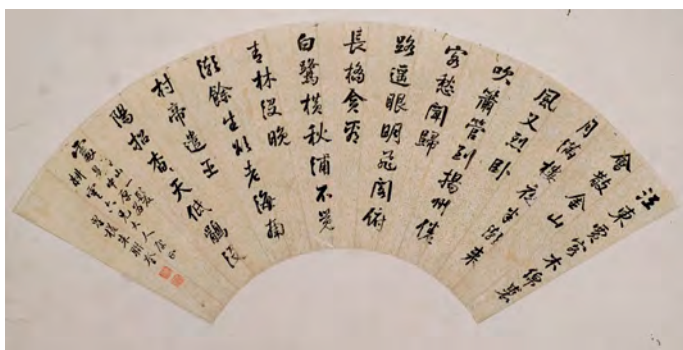 江東賈客木綿裘
會散金山
月滿樓夜半潮來
風又烈卧
吹簫管到揚州倦
客愁聞歸
路遥眼明飛閣俯
長橋貪看
白鷺橫秋浦不覺
青林没晚
潮餘生欲老海南
村帝遣巫
陽招杳杳天低鶻没
處青山一髮是中原
六兄大人雅正